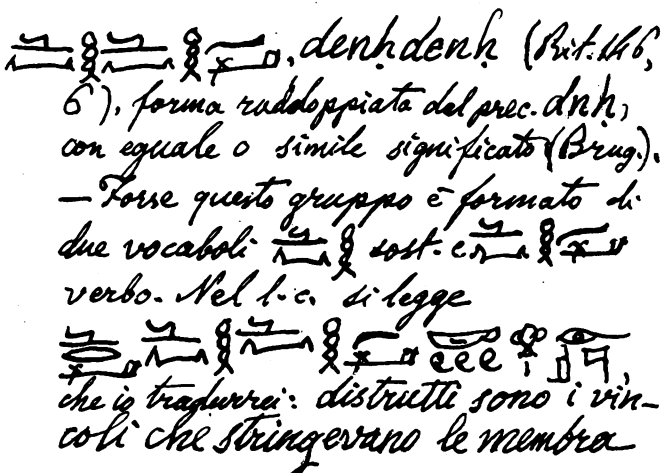 , denḥdenḥ (Rit. 146,
6), forma raddoppiata dal prec. dnḥ,
con eguale o simile significato (Brug.).
— Forse questo gruppo è formato di
due vocaboli sost. e
verbo. Nel l. c. si legge
,
che io tradurrei: distrutti sono i vin-
coli che stringevano le membra